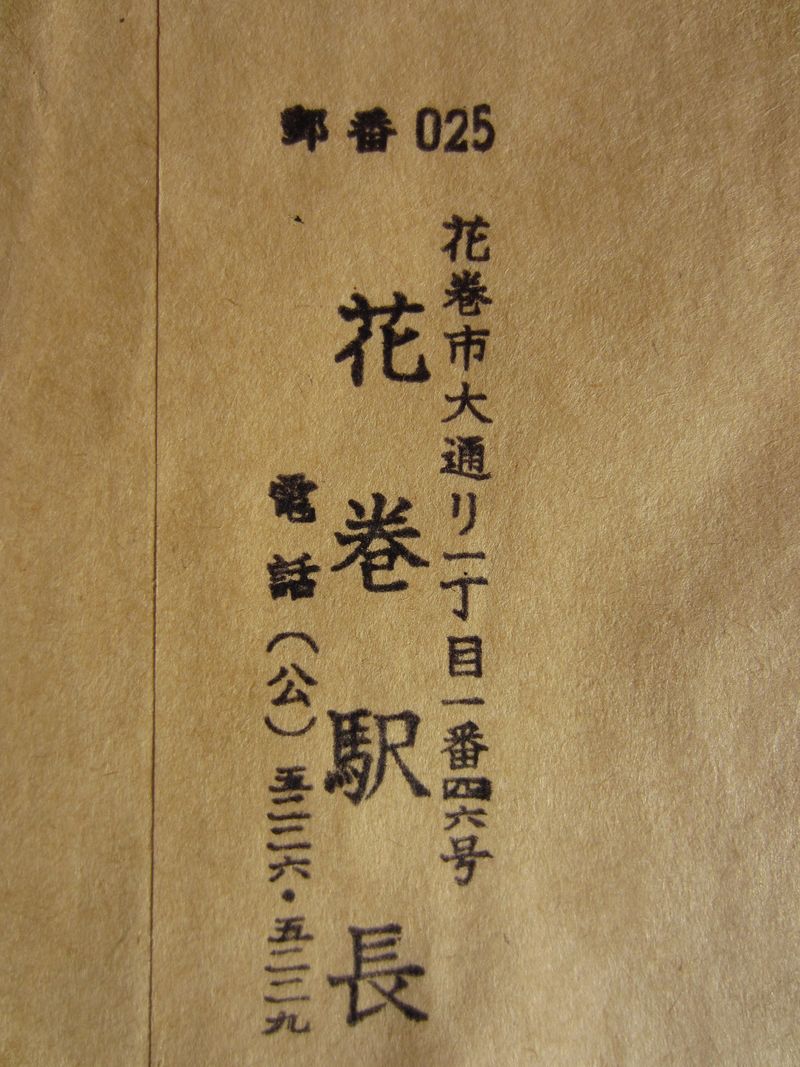 郵番025
花巻市大通リ一丁目一番四六号
花巻駅長
電話(公)五二二六・五二二九